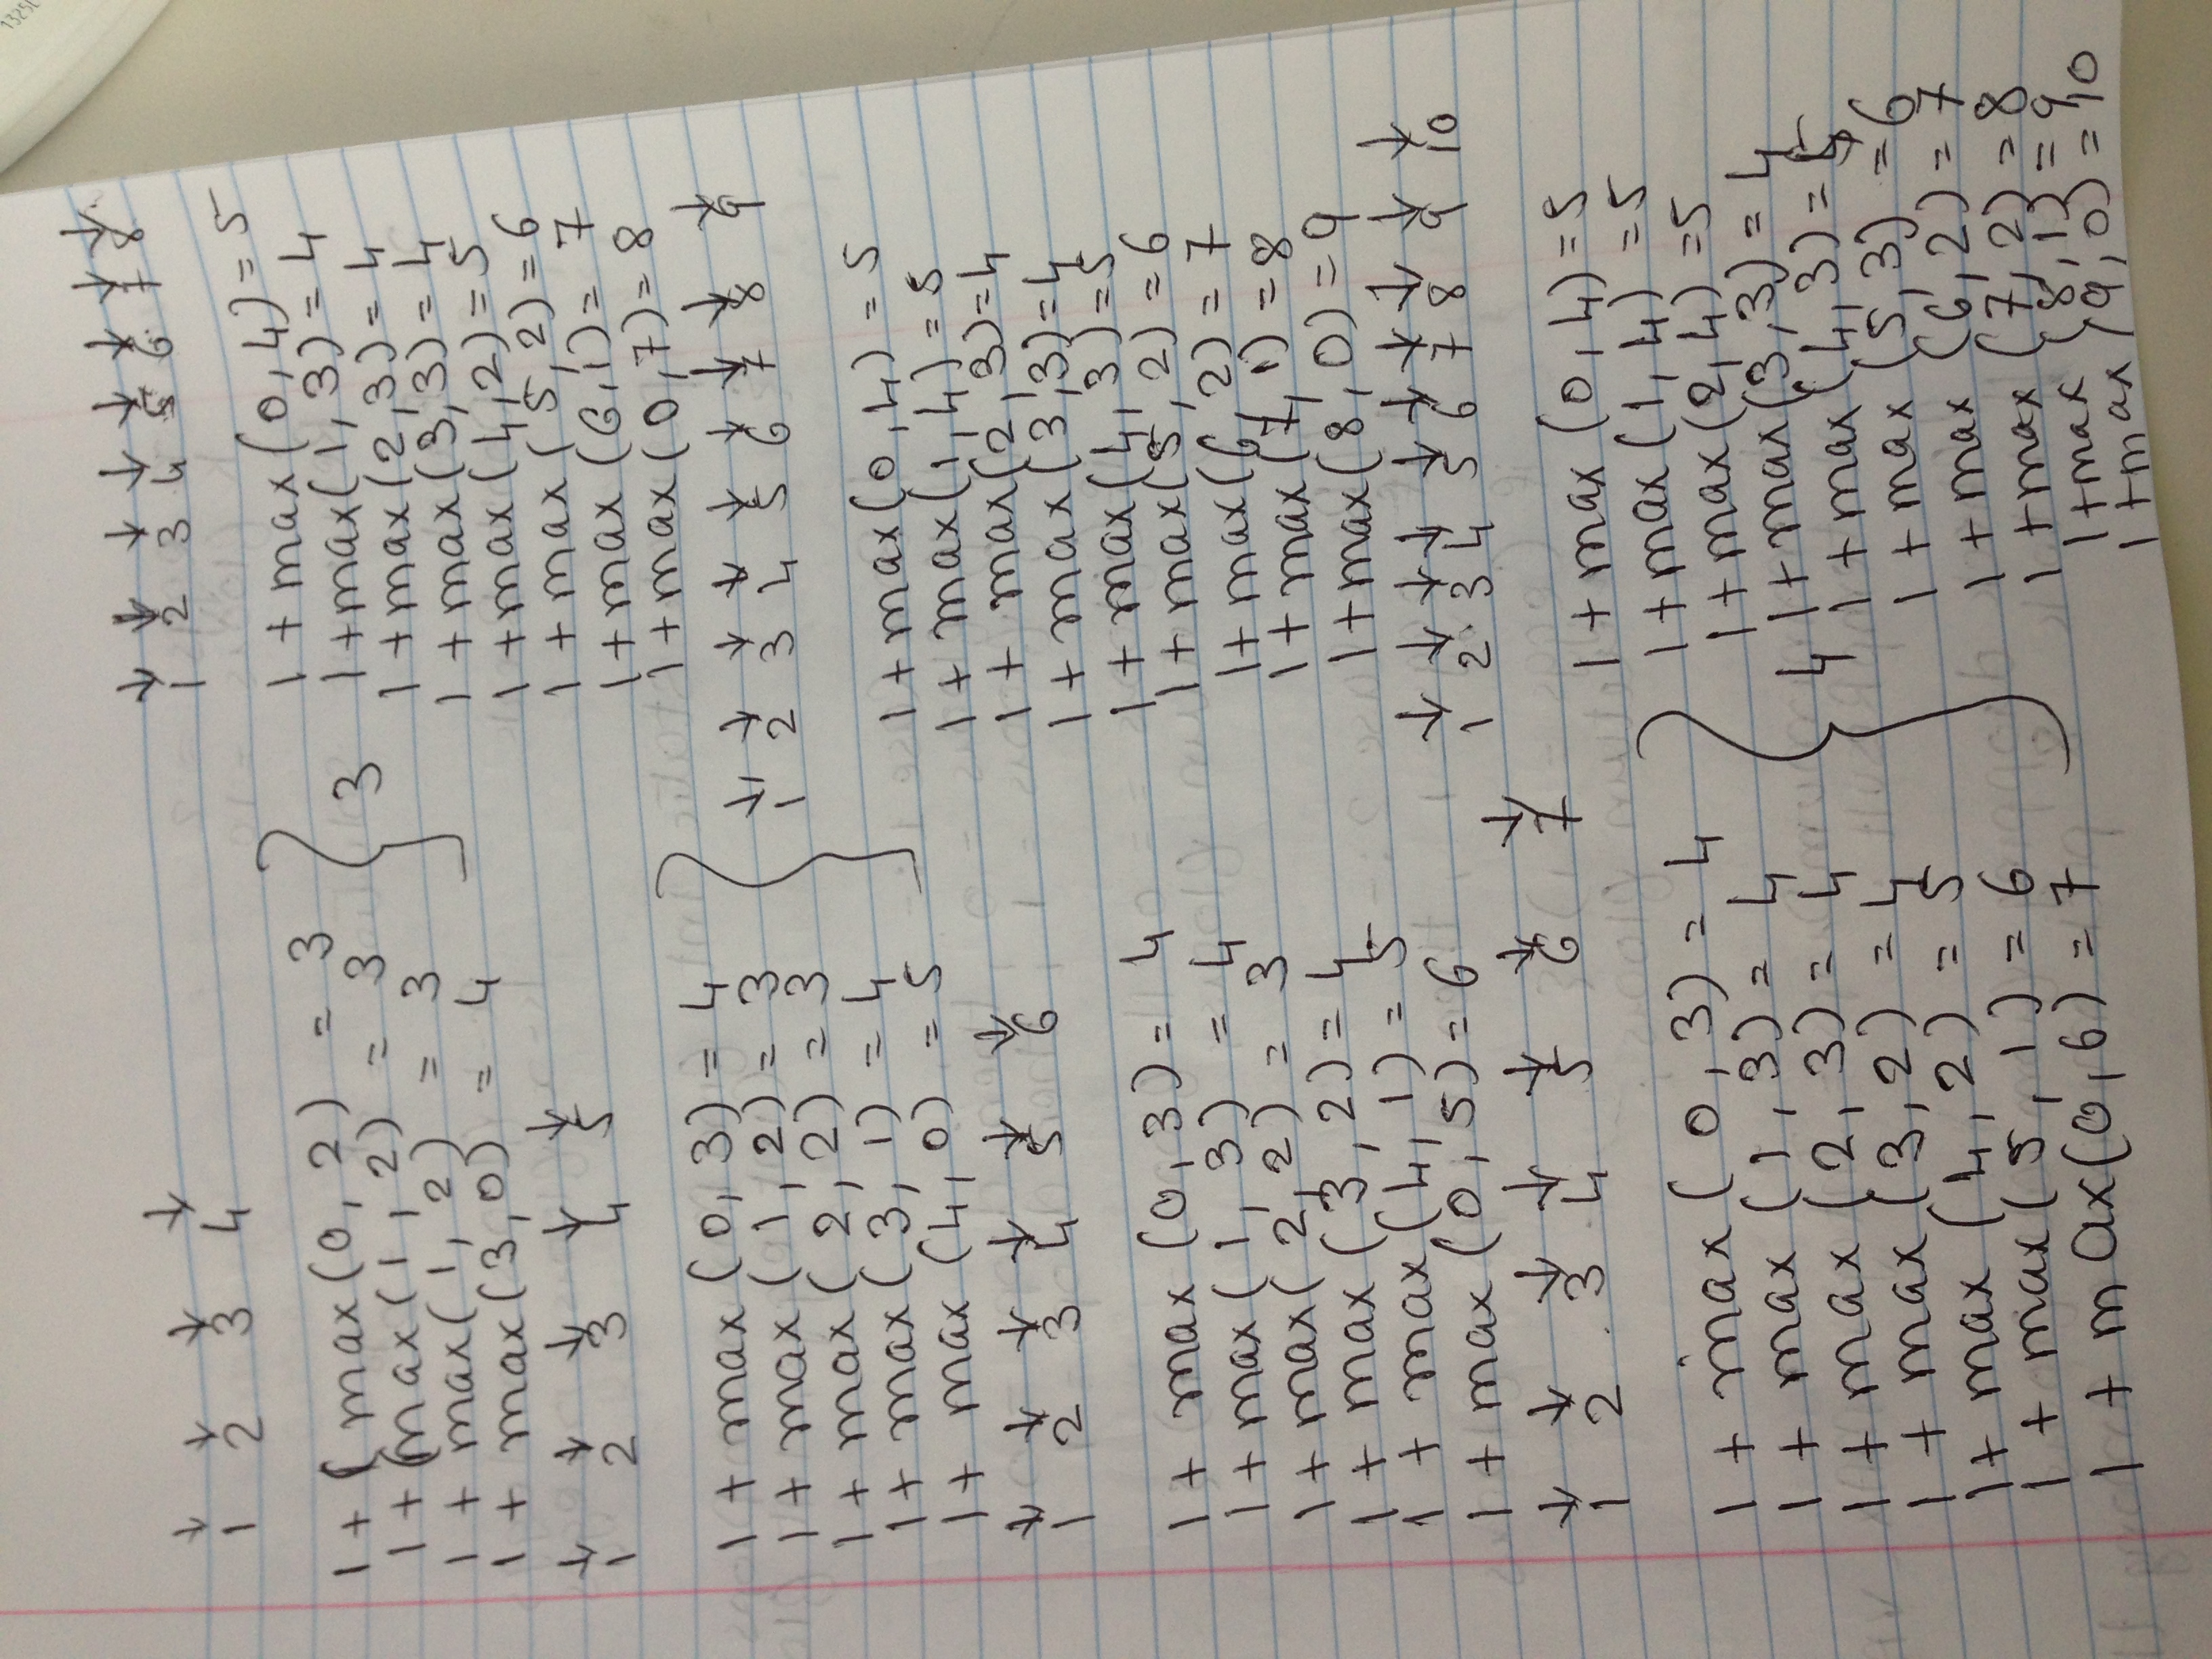 1 2 3 4
1 + ( max(0, 2) = 3
1 + (max(1, 2) = 3
1 + max(1, 2) = 3
1 + max(3, 0) = 4
3
1 2 3 4 5
1 + max(0, 3) = 4
1 + max(1, 2) = 3
1 + max(2, 2) = 3
1 + max(3, 1) = 4
1 + max(4, 0) = 5
1 2 3 4 5 6
1 + max(0, 3) = 4
1 + max(1, 3) = 4
1 + max(2, 2) = 3
1 + max(3, 2) = 4
1 + max(4, 1) = 5
1 + max(0, 5) = 6
1 2 3 4 5 6 7
1 + max(0, 3) = 4
1 + max(1, 3) = 4
1 + max(2, 3) = 4
1 + max(3, 2) = 4
1 + max(4, 2) = 5
1 + max(5, 1) = 6
1 + max(0, 6) = 7
4
1 2 3 4 5 6 7 8
1 + max(0, 4) = 5
1 + max(1, 3) = 4
1 + max(2, 3) = 4
1 + max(3, 3) = 4
1 + max(4, 2) = 5
1 + max(5, 2) = 6
1 + max(6, 1) = 7
1 + max(0, 7) = 8
1 2 3 4 5 6 7 8 9
1 + max(0, 4) = 5
1 + max(1, 4) = 5
1 + max(2, 3) = 4
1 + max(3, 3) = 4
1 + max(4, 3) = 5
1 + max(5, 2) = 6
1 + max(6, 2) = 7
1 + max(7, 1) = 8
1 + max(8, 0) = 9
1 2 3 4 5 6 7 8 9 10
1 + max(0, 4) = 5
1 + max(1, 4) = 5
1 + max(2, 4) = 5
1 + max(3, 3) = 4
1 + max(4, 3) = 5
1 + max(5, 3) = 6
1 + max(6, 2) = 7
1 + max(7, 2) = 8
1 + max(8, 1) = 9
1 + max(9, 0) = 10